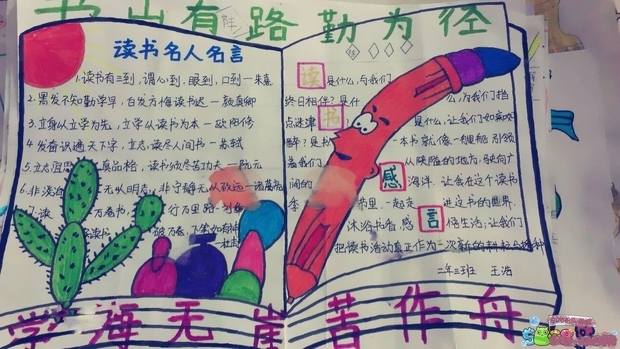 书山有路勤为径
读书名人名言
1.读书有三到，谓心到，眼到，口到一朱熹
2.黑发不知勤学早，白发方悔读书迟一颜真卿
3.立身以立学为先，立学以读书为本一欧阳修
4.发奋识遍天下字，立志读尽人间书一苏轼
5.立志 真品格，读书须尽苦功夫一阮元
6.非淡泊无以明志，非宁静无以致远一诸葛
7.读万卷书，行万里路一刘
破万卷，下笔如有神
读是什么，与我们
终日相伴？是什么，为我们指
点迷津 书 是什么，让我们如痴如
醉？是书 一本书就像一艘船引领
着我们 从狭隘的地方，驶向广
阔的 感 海洋.让我在这个读书
季 里.一起走进这书的世界.
沐浴书香感 言 悟生活；让我们
把读书活动真正作为一次新的
二年三班 王浩
学海无崖苦作舟